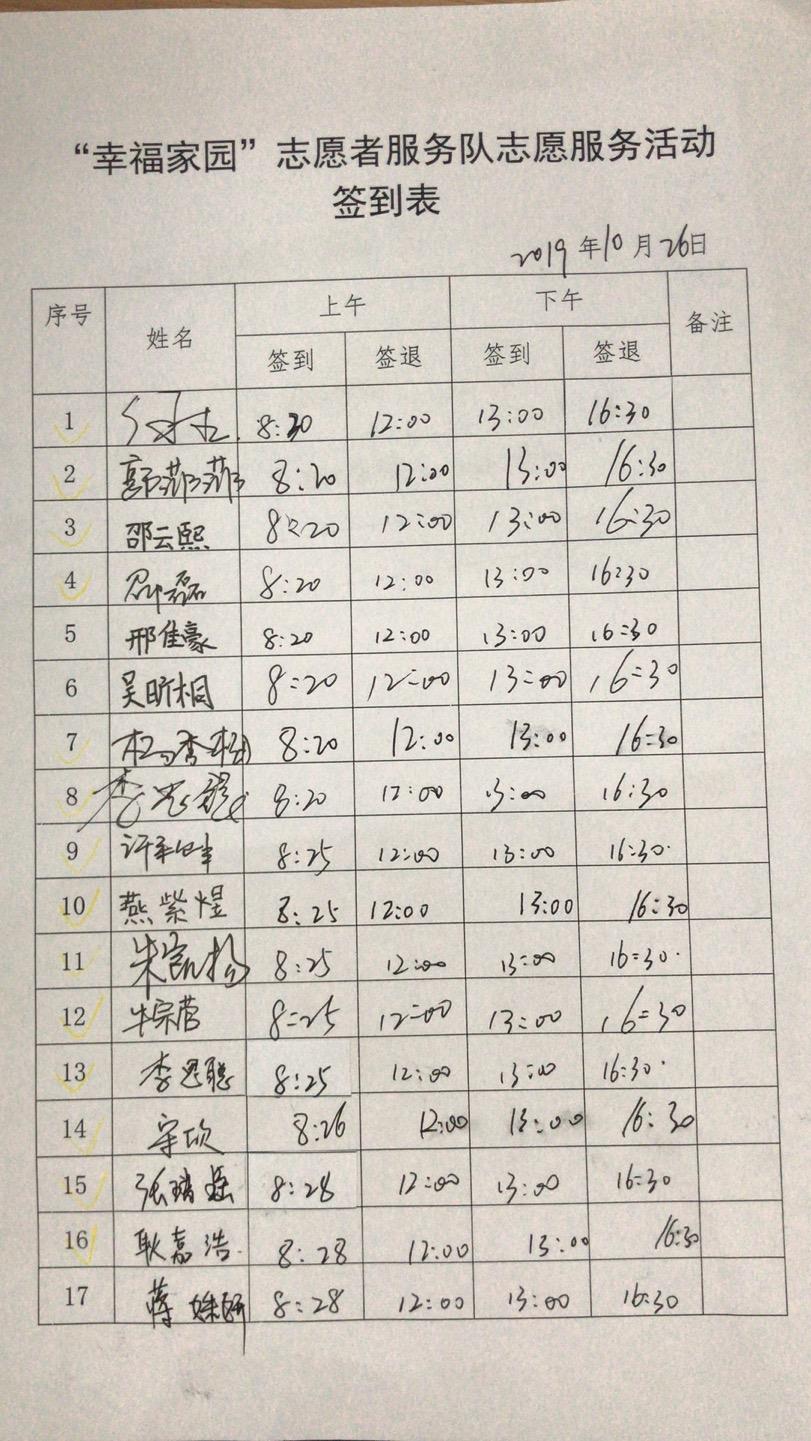 “幸福家园”志愿者服务队志愿服务活动
签到表
2019年10月26日
序号 姓名 上午 下午 备注
签到 签退 签到 签退
1 8:20 12:00 13:00 16:30
2 郭莎莎 8:20 12:00 13:00 16:30
3 邵云熙 8:20 12:00 13:00 16:30
4 8:20 12:00 13:00 16:30
5 邢佳豪 8:20 12:00 13:00 16:30
6 吴昕桐 8:20 12:00 13:00 16:30
7 8:20 12:00 13:00 16:30
8 8:20 12:00 13:00 16:30
9 8:25 12:00 13:00 16:30
10 燕紫煜 8:25 12:00 13:00 16:30
11 朱凯扬 8:25 12:00 13:00 16:30
12 牛宗营 8:25 12:00 13:00 16:30
13 李思聪 8:25 12:00 13:00 16:30
14 8:26 12:00 13:00 16:30
15 8:28 12:00 13:00 16:30
16 耿嘉浩 8:28 12:00 13:00 16:30
17 8:28 12:00 13:00 16:30